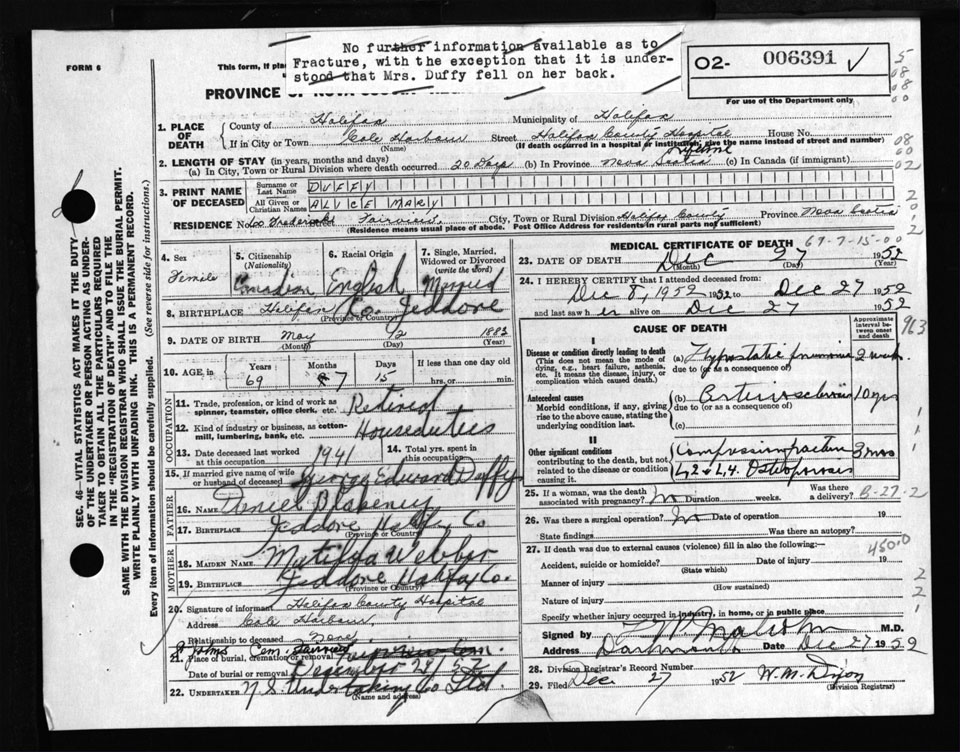 No further information available as to
Fracture, with the exception that it is under-
stood that Mrs. Duffy fell on her back.
FORM 6
This form, if
PROVINCE OF NOVA SCOTIA
02- 006391 ✓
For use of the Department only
1. PLACE OF DEATH
County of Halifax Municipality of Halifax
If in City or Town Cole Harbour (Name) Street Halifax County Hospital House No.
(If death occurred in a hospital or institution, give the name instead of street and number)
2. LENGTH OF STAY (in years, months and days)
(a) In City, Town or Rural Division where death occurred 20 Days (b) In Province Nova Scotia (c) In Canada (if immigrant)
3. PRINT NAME OF DECEASED
Surname or Last Name DUFFY
All Given or Christian Names ALICE MARY
RESIDENCE No. Frederick Fairview City, Town or Rural Division Halifax County Province Nova Scotia
(Residence means usual place of abode. Post Office Address for residents in rural parts not sufficient)
4. Sex Female
5. Citizenship (Nationality) Canadian
6. Racial Origin English
7. Single, Married, Widowed or Divorced (write the word) Married
8. BIRTHPLACE Halifax Co. Jeddore
(Province or Country)
9. DATE OF BIRTH May (Month) 12 (Day) 1883 (Year)
10. AGE in Years 69 Months 7 Days 15 If less than one day old hrs. or min.
OCCUPATION
11. Trade, profession, or kind of work as spinner, teamster, office clerk, etc. Retired
12. Kind of industry or business, as cotton-mill, lumbering, bank, etc. Houseduties
13. Date deceased last worked at this occupation 1941
14. Total yrs. spent in this occupation
15. If married give name of wife or husband of deceased George Edward Duffy
FATHER
16. Name Daniel Blakeney
17. Birthplace Jeddore Halifax Co
(Province or Country)
MOTHER
18. Maiden Name Matilda Webber
19. Birthplace Jeddore Halifax Co.
(Province or Country)
20. Signature of informant Halifax County Hospital
Address Cole Harbour,
Relationship to deceased None
St Johns Cem. Fairview
21. Place of burial, cremation or removal Fairview Cem.
Date of burial or removal December 29/52
22. UNDERTAKER N.S. Undertaking Co Ltd
(Name and address)
MEDICAL CERTIFICATE OF DEATH
69-7-15-00
23. DATE OF DEATH Dec (Month) 27 (Day) 1952 (Year)
24. I HEREBY CERTIFY that I attended deceased from:
Dec 8, 1952 1952 to Dec 27 1952
and last saw her alive on Dec 27 1952
CAUSE OF DEATH
Approximate interval between onset and death
963
I
Disease or condition directly leading to death
(This does not mean the mode of dying, e.g., heart failure, asthenia, etc. It means the disease, injury, or complication which caused death.)
(a) Hypostatic pneumonia 2 week
due to (or as a consequence of)
Antecedent causes
Morbid conditions, if any, giving rise to the above cause, stating the underlying condition last.
(b) Arteriosclerosis 10 yrs
due to (or as a consequence of)
(c)
II
Other significant conditions
contributing to the death, but not related to the disease or condition causing it.
Compression fracture 3 mos
L2 & L4. Osteoporosis
25. If a woman, was the death associated with pregnancy? No Duration weeks. Was there a delivery? B-27-2
26. Was there a surgical operation? No Date of operation 19
State findings Was there an autopsy?
27. If death was due to external causes (violence) fill in also the following:—
450.0
Accident, suicide or homicide? (State which) Date of injury 19
Manner of injury (How sustained)
Nature of injury
Specify whether injury occurred in industry, in home, or in public place
Signed by Malcolm M.D.
Address Dartmouth Date Dec 27 1952
28. Division Registrar's Record Number
29. Filed Dec 27 1952 W. M. Dixon
(Division Registrar)
SEC. 46—VITAL STATISTICS ACT MAKES IT THE DUTY
OF THE UNDERTAKER OR PERSON ACTING AS UNDER-
TAKER TO OBTAIN ALL THE PARTICULARS REQUIRED
IN THE "REGISTRATION OF DEATH" AND TO FILE THE
SAME WITH THE DIVISION REGISTRAR WHO SHALL ISSUE THE BURIAL PERMIT.
WRITE PLAINLY WITH UNFADING INK. THIS IS A PERMANENT RECORD.
Every item of information should be carefully supplied. (See reverse side for instructions.)